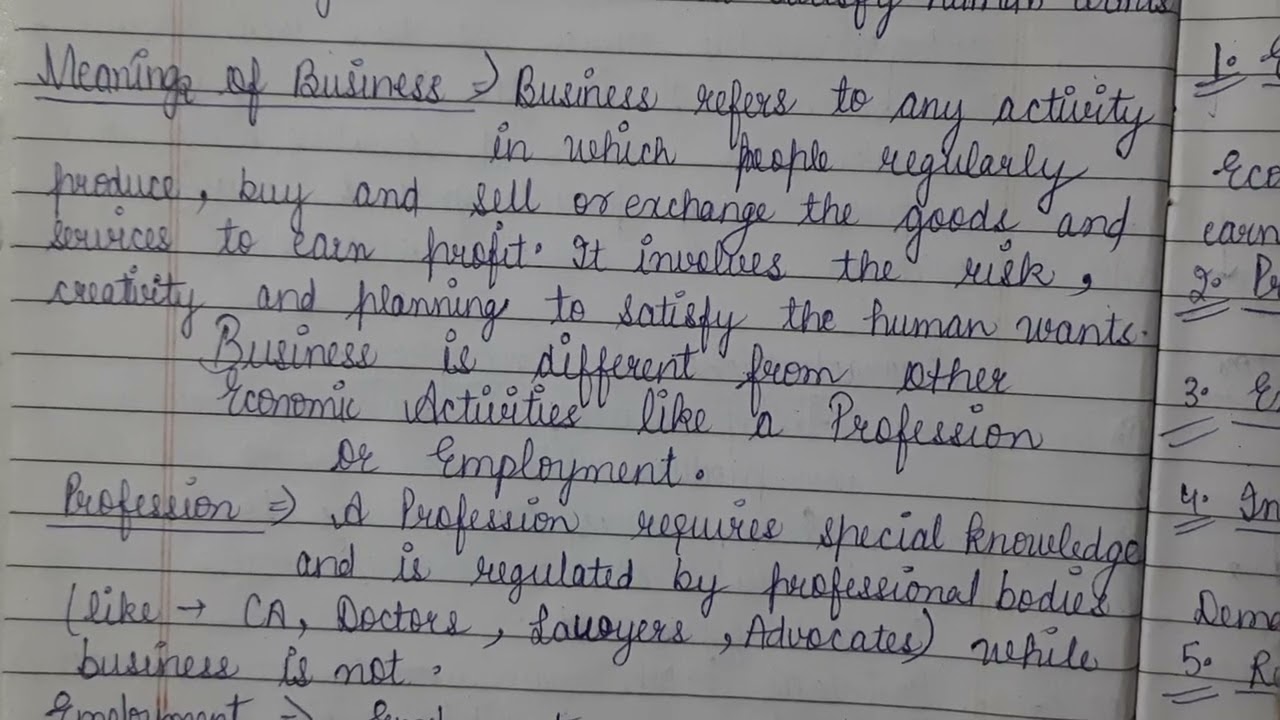 satisfy human wants
Meaning of Business => Business refers to any activity
in which people regularly
produce, buy and sell or exchange the goods and
services to earn profit. It involves the risk,
creativity and planning to satisfy the human wants.
Business is different from other
Economic Activities like a Profession
or Employment.
Profession => A Profession requires special knowledge
and is regulated by professional bodies
(like → CA, Doctors, Lawyers, Advocates) while
business is not.
Employment =>
1.
Eco
earn
2. Pr
3. E
4. In
Dema
5. R